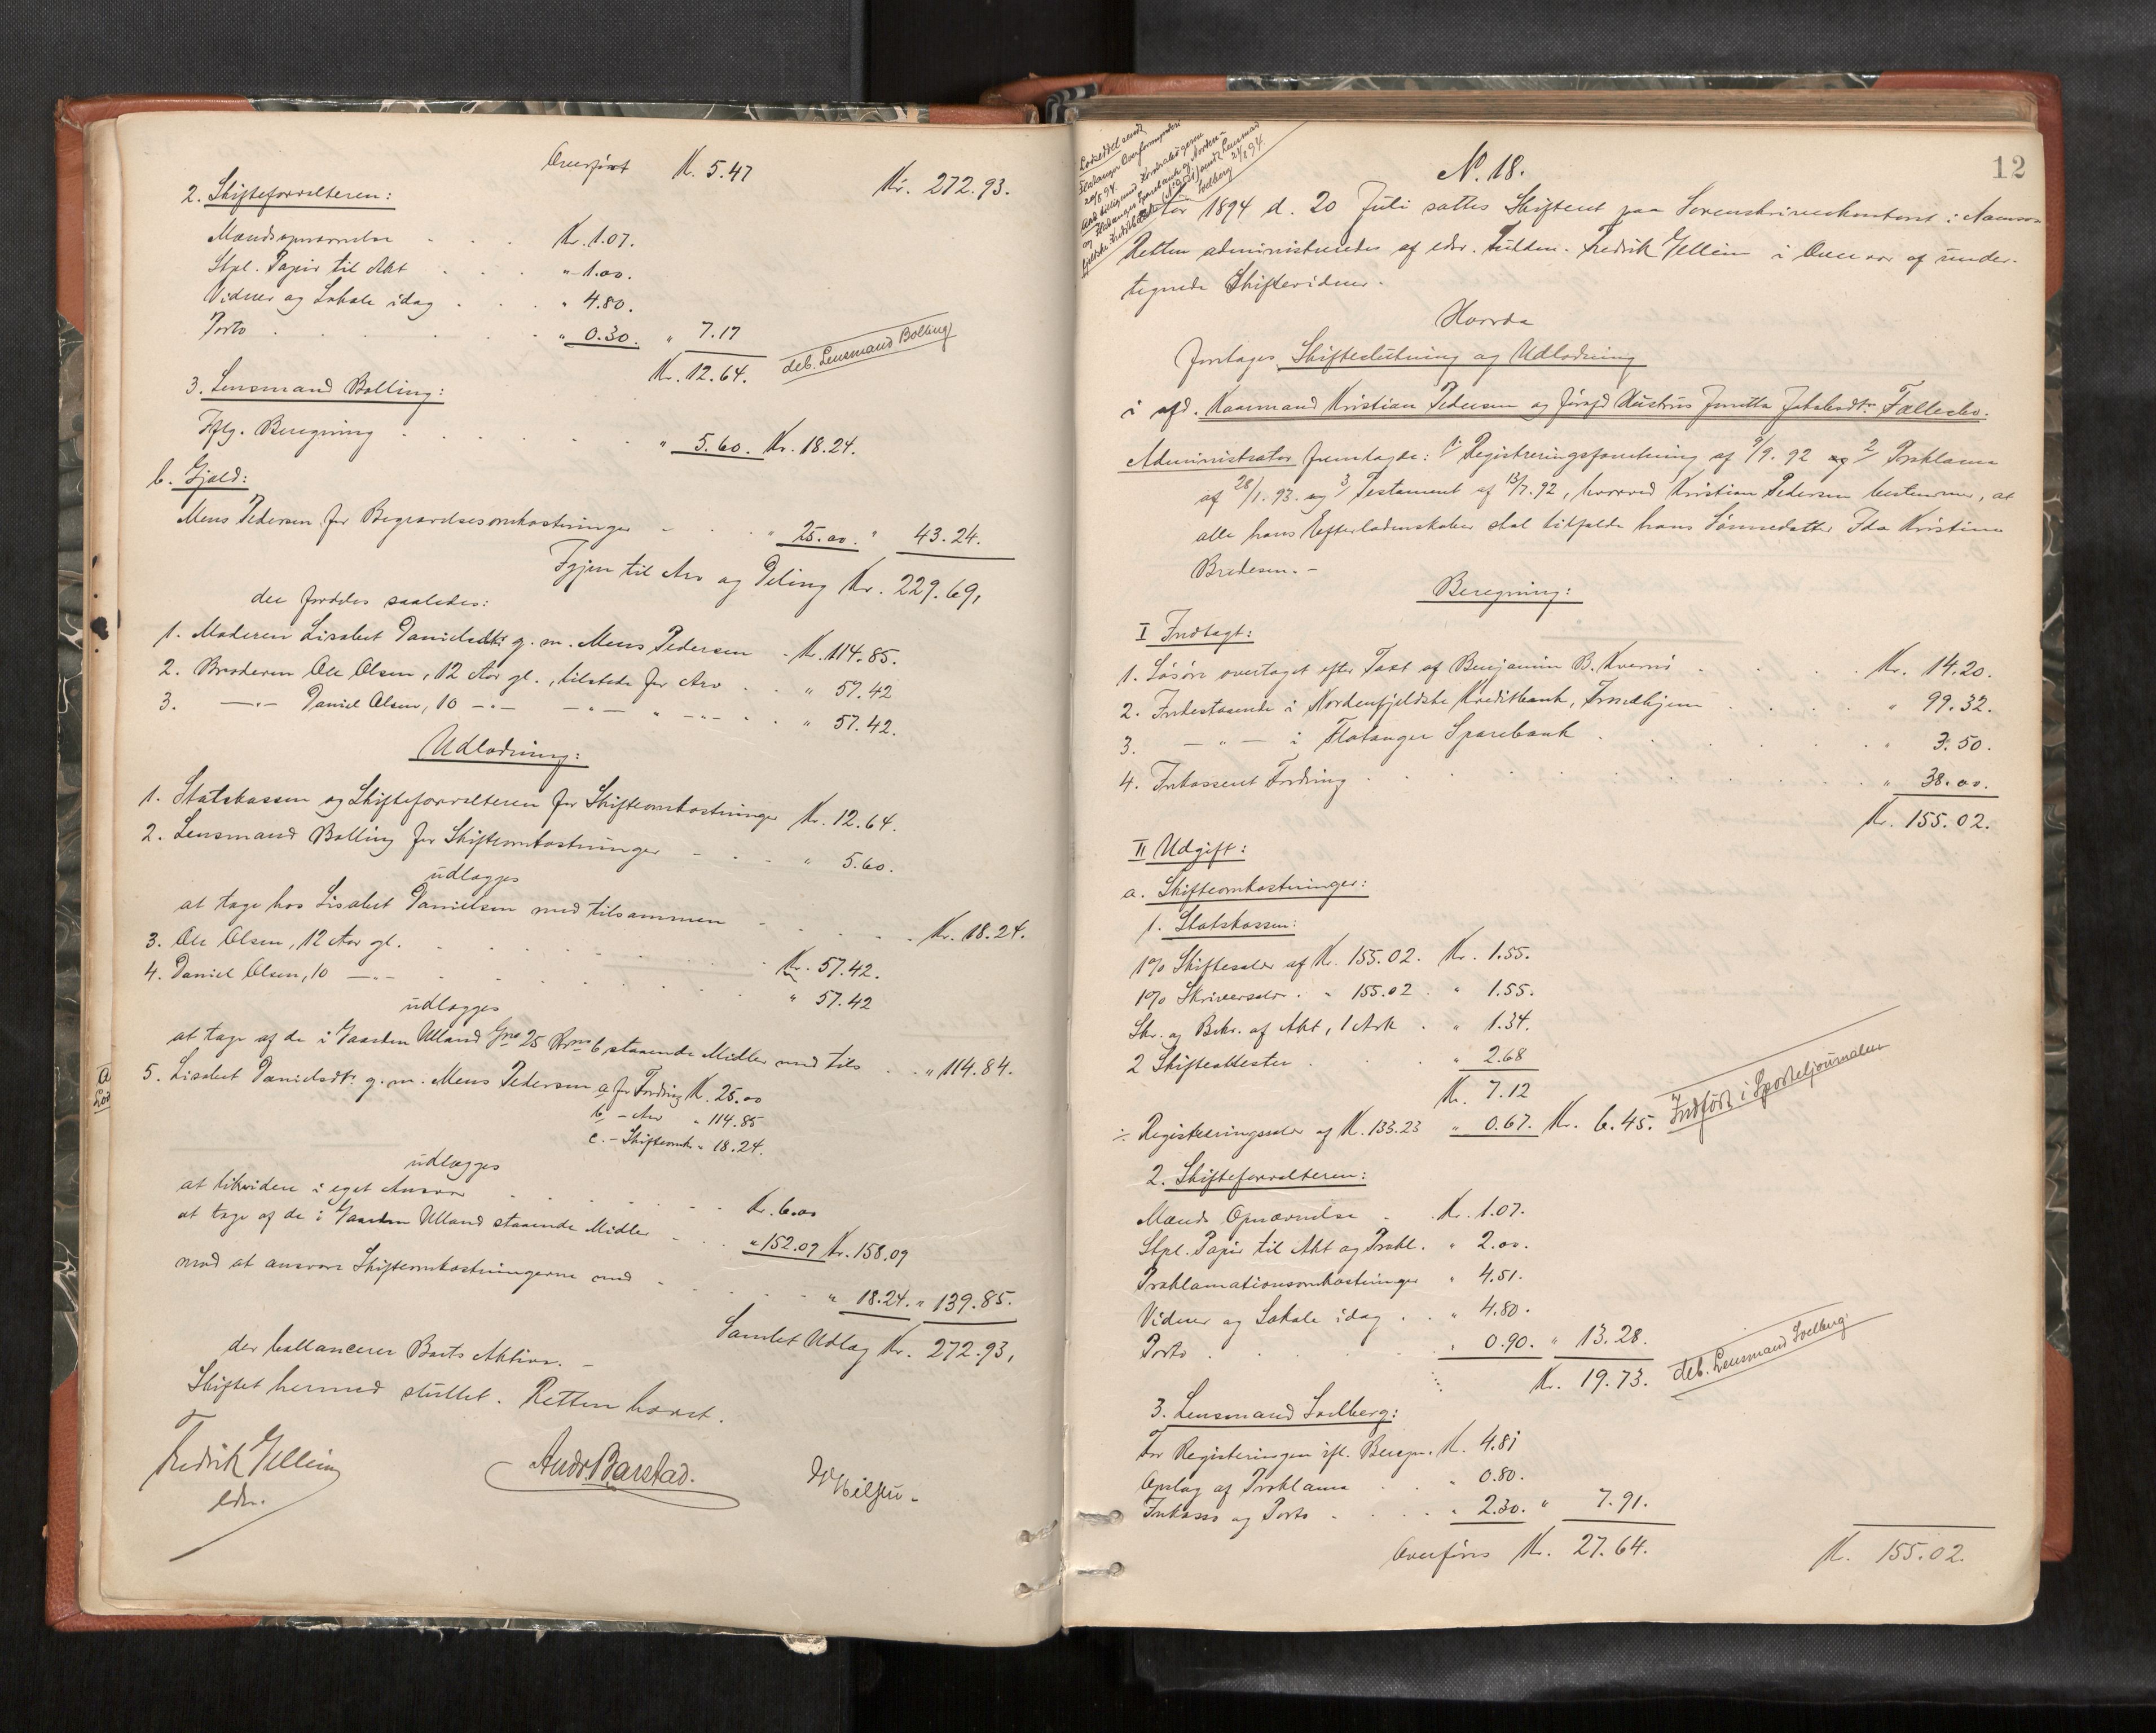 Overført K. 5.47 Kr. 272.93.
2. Skifteforvalteren:
Mændsopnævnelse . . . Kr. 1.07.
Stpl. Papir til Akt . . . " 1.00.
Vidner og Lokale idag . . . " 4.80.
Porto . . . " 0.30. " 7.17
Kr. 12.64. deb. Lensmand Bolling
3. Lensmand Bolling:
Iflg. Beregning . . . " 5.60. Kr. 18.24.
b. Gjæld:
Mens Pedersen for Begravelsesomkostninger . . " 25.00. " 43.24.
Igjen til Arv og Deling Kr. 229.69,
der fordeles saaledes:
1. Moderen Lisabet Danielsdtr. g. m. Mens Pedersen . Kr. 114.85.
2. Broderen Ole Olsen, 12 Aar gl., tilstede for Arv . . " 57.42
3. —"— Daniel Olsen, 10 —"— —"— " —"— . . " 57.42.
Udlodning:
1. Statskassen og Skifteforvalteren for Skifteomkostninger Kr. 12.64.
2. Lensmand Bolling for Skifteomkostninger . . . " 5.60.
udlægges
at tage hos Lisabet Danielsen med tilsammen . . . Kr. 18.24.
3. Ole Olsen, 12 Aar gl. . . . Kr. 57.42.
4. Daniel Olsen, 10 —"— . . . " 57.42
udlægges
at tage af de i Gaarden Ulland Gno 25 Brno 6 staaende Midler med tils . . " 114.84.
5. Lisabet Danielsdtr. g. m. Mens Pedersen a for Fordring K. 25.00
b — Arv " 114.85
c. — Skifteomk. " 18.24.
udlægges
at likvidere i eget Ansvar . . . Kr. 6.00
at tage af de i Gaarden Ulland staaende Midler . . . " 152.09 Kr. 158.09
mod at ansvare Skifteomkostningerne med . . . " 18.24. " 139.85.
Samlet Udlæg Kr. 272.93,
der ballancerer Boets Aktiva. —
Skiftet hermed sluttet. Retten hævet.
Fredrik Gellein
edsv.
Andr. Barstad.
12
Lodseddel sendt
Flatanger Overformynderi
20/8 94.
og Flatanger Sparebank og Norden-
fjeldske Kreditbank
sendt Lensmand
Solberg
N. 18.
Aar 1894 d. 20 Juli sattes Skifteret paa Sorenskriverkontoret i Namsos
Retten administreredes af edsv. Fuldm. Fredrik Gellein i Overvær af under-
tegnede Skiftevidner.
Hvorda
foretages Skifteslutning og Udlodning
i afd. Kaarmand Kristian Pedersen og forafd Hustrus Jonetta Jakobsdtr. Fællesbo.
Administrator fremlagde: 1/ Registreringsforretning af 9/9. 92 og 2/ Proklama
af 28/1. 93. og 3/ Testament af 13/7. 92, hvorved Kristian Pedersen bestemmer, at
alle hans Efterladenskaber skal tilfalde hans Sønnedatter Ida Kristine
Bredesen. —
Beregning:
I Indtægt:
1. Løsøre overtaget efter Taxt af Benjamin B. Kvernø . . . Kr. 14.20.
2. Indestaaende i Nordenfjeldske Kreditbank, Trondhjem . . . " 99.32.
3. —"— i Flatanger Sparebank . . . " 3.50.
4. Inkasseret Fordring . . . " 38.00.
Kr. 155.02.
II Udgift:
a. Skifteomkostninger:
1. Statskassen:
1% Skiftesalær af Kr. 155.02. Kr. 1.55.
1% Skriversalær . " 155.02 . " 1.55.
Skr. og Bekr. af Akt, 1 Ark . " 1.34.
2 Skifteattester . . . " 2.68
Kr. 7.12
÷ Registreringssalær af K. 133.23 " 0.67. Kr. 6.45. Indført i Sporteljournalen
2. Skifteforvalteren:
Mænds Opnævnelse . . Kr. 1.07.
Stpl. Papir til Akt og Prokl. " 2.00.
Proklamationsomkostninger " 4.51.
Vidner og Lokale idag . . " 4.80.
Porto . . . " 0.90. " 13.28.
Kr. 19.73. deb. Lensmand Solberg
3. Lensmand Solberg:
For Registreringen ifl. Beregn. K. 4.81
Opslag af Proklama . . " 0.80.
Inkasso og Porto . . . " 2.30. " 7.91.
Overføres Kr. 27.64. K. 155.02.